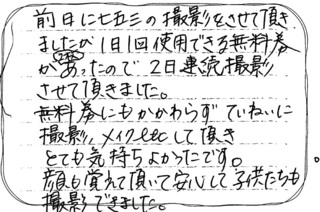 前日に七五三の撮影をさせて頂き
ましたが1日1回使用できる無料券
があったので2日連続撮影
させて頂きました。
無料券にもかかわらずていねいに
撮影、メイクetcして頂き
とても気持ちよかったです。
顔も覚えて頂いて安心して子供たちも
撮影できました。